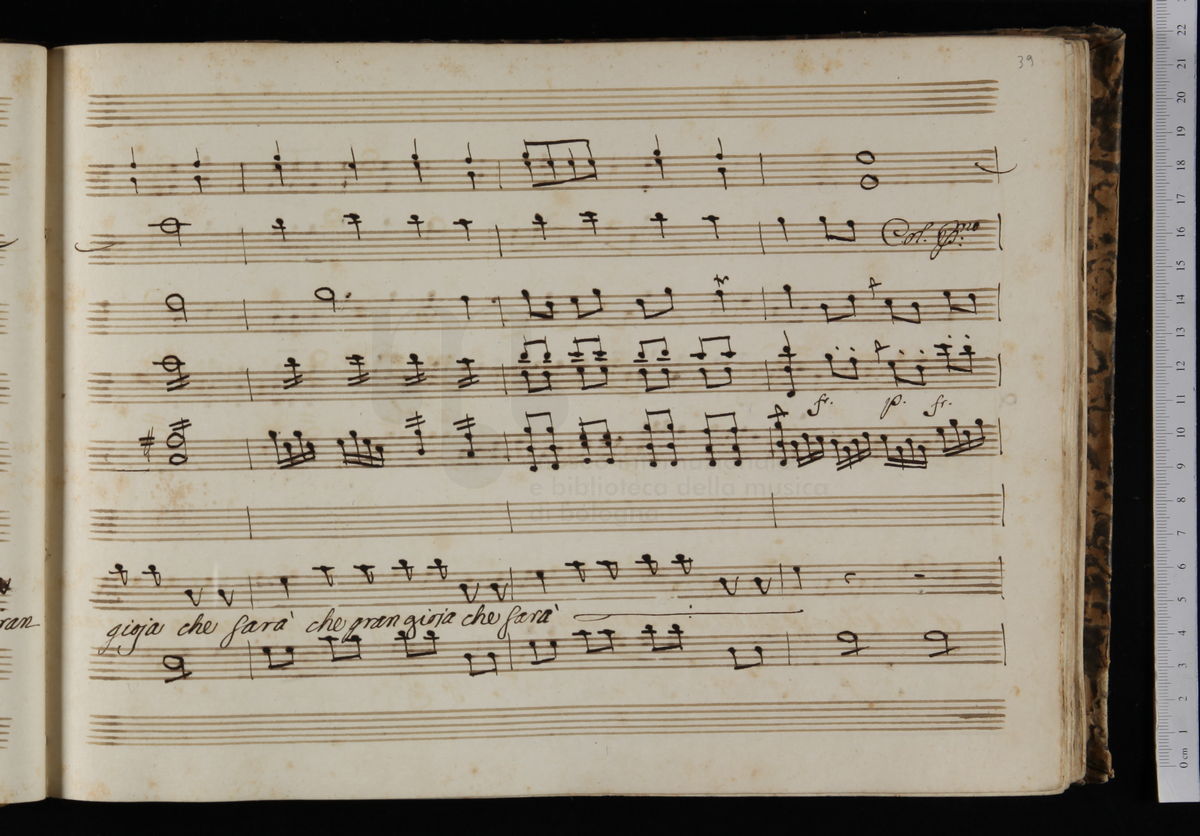 39
Col. P:mo
fr. p. fr.
e biblioteca della musica
ran
gioja che sarà che gran gioja che sarà
0 cm 1 2 3 4 5 6 7 8 9 10 11 12 13 14 15 16 17 18 19 20 21 22